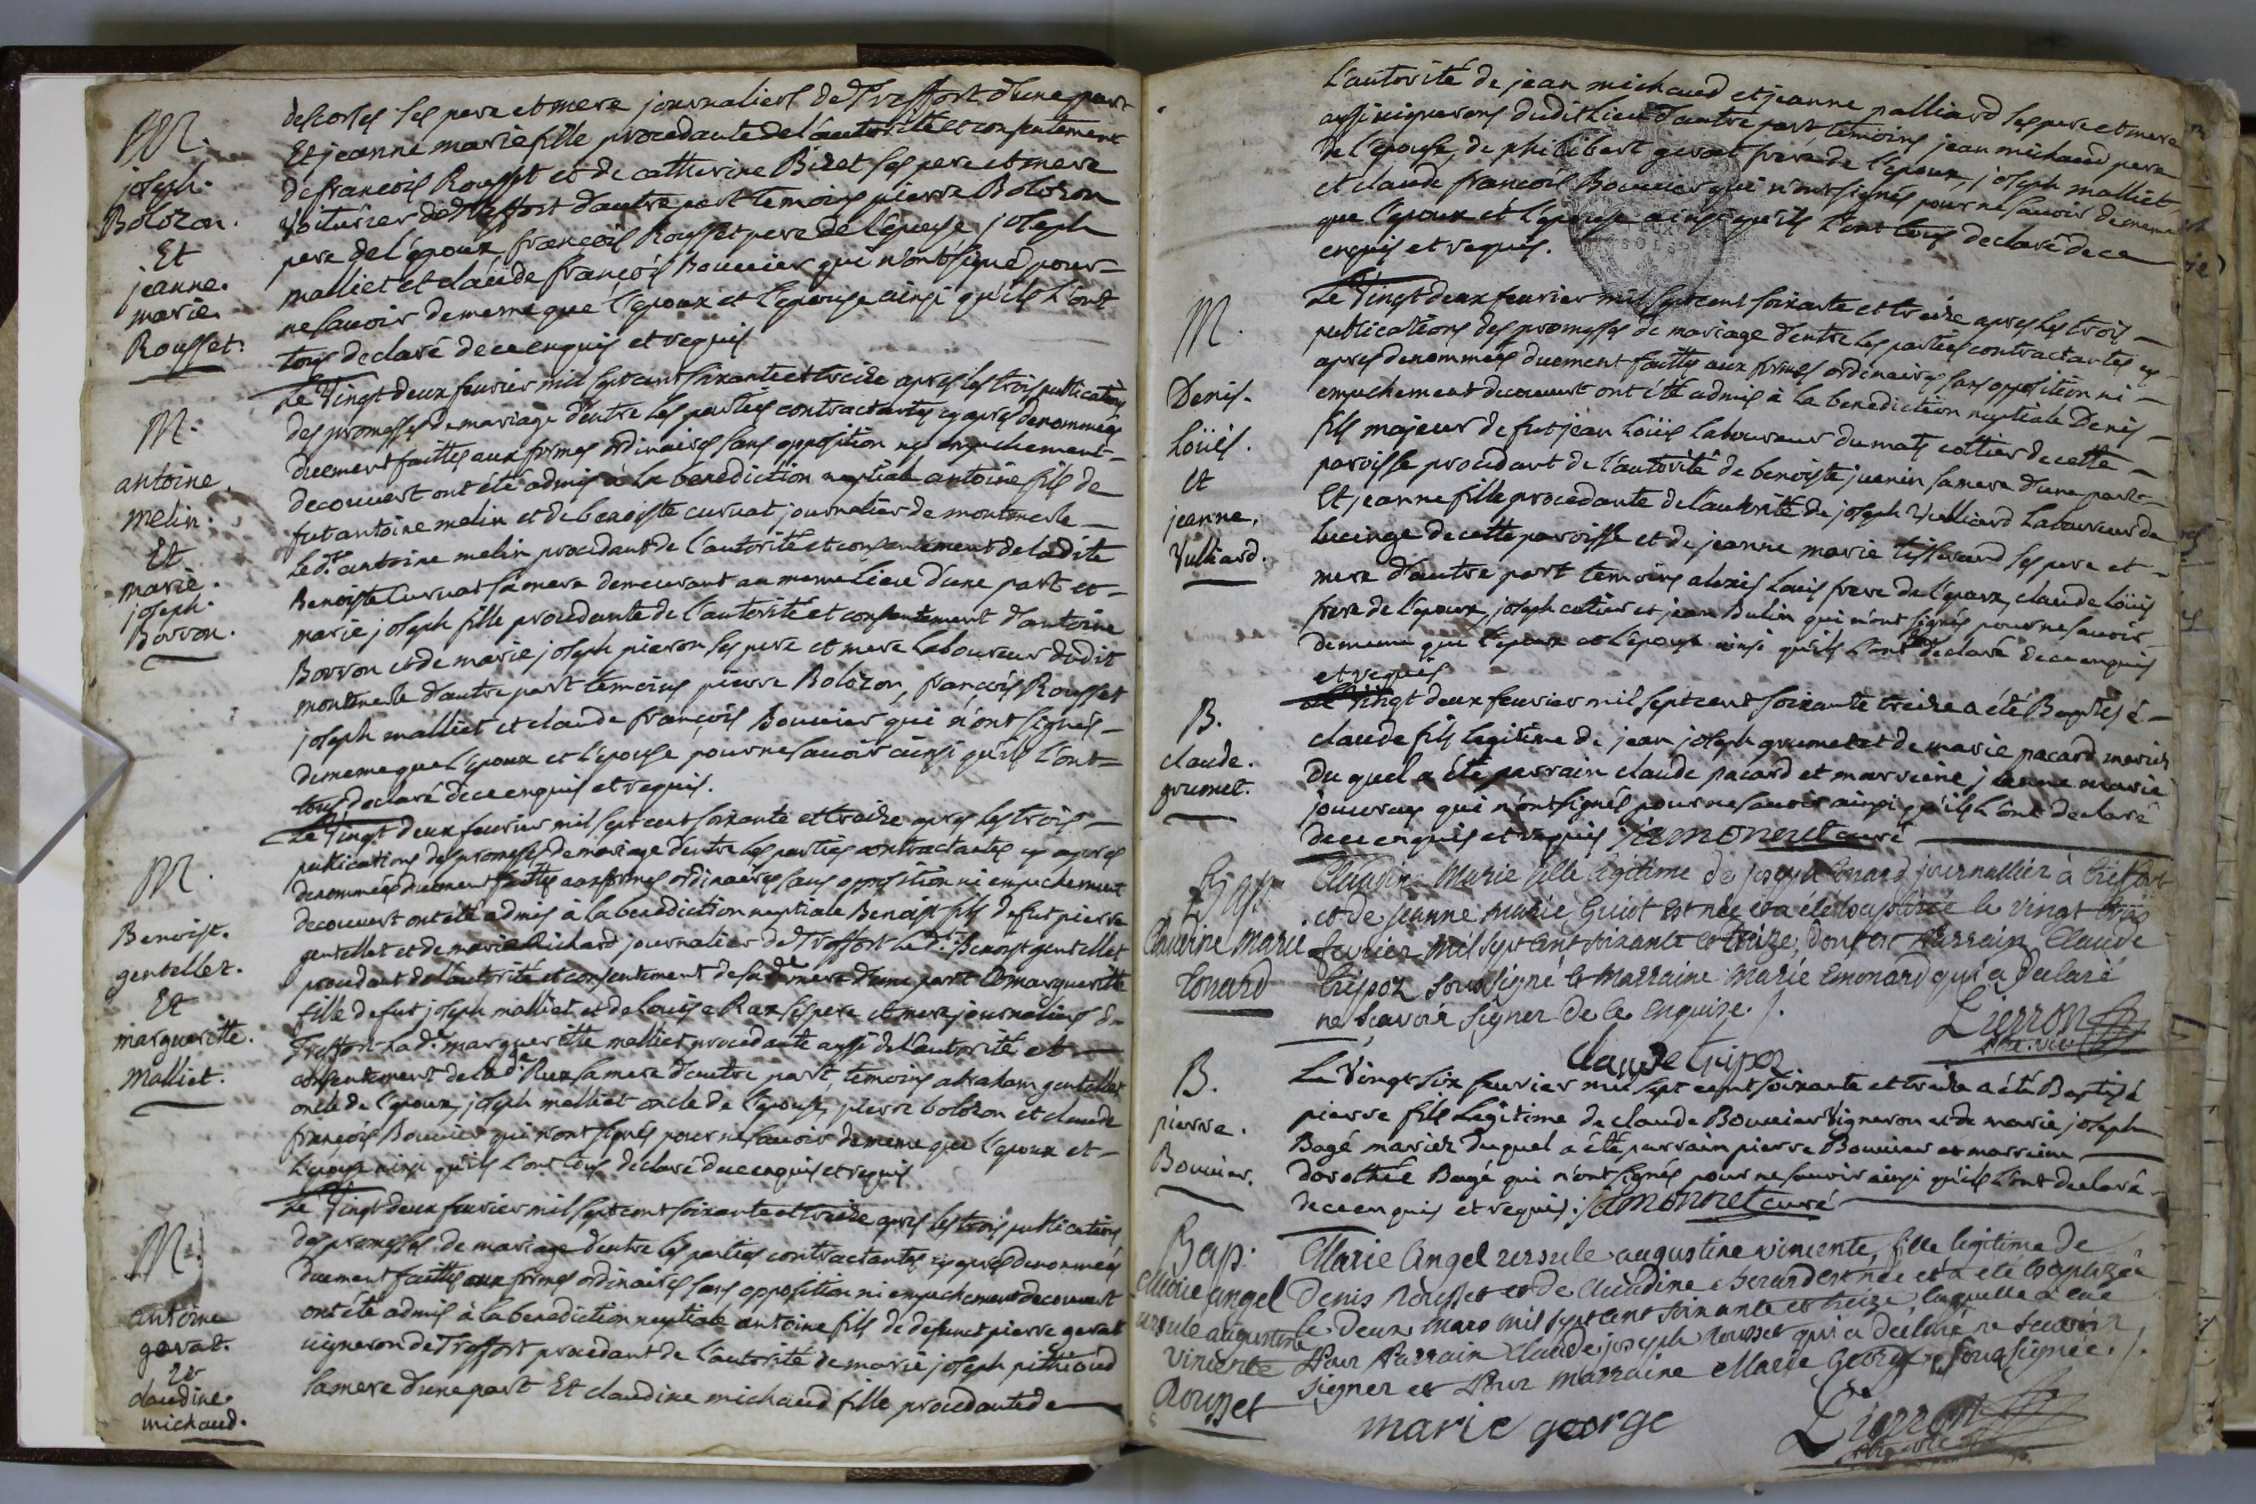 M.
joseph.
Bolozon.
Et
jeanne.
marie.
Rousset.
descostes ses pere et mere journaliers de Treffort d'une part
Et jeanne marie fille procedante de l'autorité et consentement
de francois Rousset et de catherine Bizet ses pere et mere
Voiturier de Treffort d'autre part temoins pierre Bolozon
pere de l'époux, françois Rousset pere de l'épouse joseph
malliet et claude françois Bouvier qui n'ont signé pour
ne savoir de meme que l'epoux et l'epouse ainsi qu'ils l'ont
tous declaré de ce enquis et requis
M.
antoine.
melin.
Et
marie.
joseph.
Borron.
Le Vingt deux fevrier mil sept cent soixante et treize apres les trois publications
des promesses de mariage d'entre les parties contractantes cy apres denommées
duement faittes aux formes ordinaires sans opposition ny empechement
decouvert ont été admis à la benediction nuptiale antoine fils de
fut antoine melin et de benoiste curvat journalier de montmerle
Le d.t antoine melin procedant de l'autorité et consentement de ladite
Benoiste Curvat sa mere demeurant au meme lieu d'une part et
marie joseph fille procedante de l'autorité et consentement d'antoine
Borron et de marie joseph pieron ses pere et mere Laboureur dudit
montmerle d'autre part temoins pierre Bolozon, françois Rousset
joseph malliet et claude françois Bouvier qui n'ont signés
de meme que l'epoux et l'epouse pour ne savoir ainsi qu'ils l'ont
tous declaré de ce enquis et requis.
M.
Benoist.
gentellet.
Et
margueritte.
Malliet.
Le Vingt deux fevrier mil sept cent soixante et treize apres les trois
publications des promesses de mariage d'entre les parties contractantes cy apres
denommées duement faittes aux formes ordinaires sans opposition ni empechement
decouvert ont été admis à la benediction nuptiale Benoist fils de fut pierre
gentellet et de marie Richard journalier de Treffort le d.t Benoist gentellet
procedant de l'autorité et consentement de sa d.e mere d'une part Et margueritte
fille de fut joseph malliet et de Louise Rux ses pere et mere journaliers de
Treffort La d.e margueritte malliet procedante aussi de l'autorité et
consentement de la d.e Rux sa mere d'autre part, temoins abraham gentellet
oncle de l'epoux, joseph malliet oncle de l'epouse, pierre bolozon et claude
françois Bouvier qui n'ont signés pour ne savoir de meme que l'epoux et
l'epouse ainsi qu'ils l'ont tous declaré de ce enquis et requis
M.
antoine
gevat.
Et
claudine.
michaud.
Le Vingt deux fevrier mil sept cent soixante et treize apres les trois publications
des promesses de mariage d'entre les parties contractantes cy apres denommées
duement faittes aux formes ordinaires sans opposition ni empechement decouvert
ont été admis à la benediction nuptiale antoine fils de defunct pierre gevat
vigneron de Treffort procedant de l'autorité de marie joseph pithioud
sa mere d'une part Et claudine michaud fille procedante de
L'autorité de jean michaud et jeanne palliard ses pere et mere
aussi vignerons dudit Lieu d'autre part temoins jean michaud pere
de l'epouse, de philibert gevat frere de l'epoux, joseph malliet,
et claude françois Bouvier qui n'ont signés pour ne savoir de meme
que l'epoux et l'epouse ainsi qu'ils l'ont tous declaré de ce
enquis et requis.
M.
Denis.
Loüis.
Et
jeanne.
Vulliard.
Le Vingt deux fevrier mil sept cent soixante et treize apres les trois
publications des promesses de mariage d'entre les parties contractantes cy
apres denommées duement faittes aux formes ordinaires sans opposition ni
empechement decouvert ont été admis à la benediction nuptiale Denis
fils majeur de fut jean Loüis laboureur du mats cottier de cette
paroisse procedant de l'autorité de benoiste juenin sa mere d'une part
Et jeanne fille procedante de l'autorité de joseph Vulliard Laboureur de
Lucinge de cette paroisse et de jeanne marie tisserand ses pere et
mere d'autre part temoins alexis Loüis frere de l'epoux, claude loüis
frere de l'epoux, joseph cotier et jean Bulin qui n'ont signés pour ne savoir
de meme que l'epoux et l'epouse ainsi qu'ils l'ont tous declaré de ce enquis
et requis
B.
claude.
grumet.
Le Vingt deux fevrier mil sept cent soixante treize a été Baptisé
claude fils legitime de jean joseph grumet et de marie pacard mariés
du quel a été parrain claude pacard et marreine jeanne marie
qui n'ont signés pour ne savoir ainsi qu'ils l'ont declaré
de ce enquis et requis. Lamonnet curé
Bap.
Claudine Marie
Tonard
Claudine Marie fille legitime de joseph Tonard journallier à Treffort
et de jeanne marie Guiot est née et a été baptisée le vingt trois
fevrier mil sept cent soixante et treize, dont est Parrain Claude
Tripoz soussigné et Marraine Marie Emonard qui a declaré
ne scavoir signer de ce enquize ./.
Pierron
ptre. vic
claude tripoz
B.
pierre.
Bouvier.
Le Vingt six fevrier mil sept cent soixante et treize a été Baptisé
pierre fils legitime de claude Bouvier Vigneron et de marie joseph
Bagé mariés duquel a été parrain pierre Bouvier et marreine
dorothée Bagé qui n'ont signés pour ne savoir ainsi qu'ils l'ont declaré
de ce enquis et requis ./. Lamonnet curé
Bap.
Marie angel
ursule augustine
Vincente
Rousset
Marie Angel ursule augustine vincente, fille legitime de
Denis Rousset et de Claudine cherard est née et a eté baptizée
le deux Mars mil sept cent soixante et treize, laquelle a eue
Pour Parrain Claude joseph Rousset qui a declaré ne scavoir
signer et Pour marraine Marie George soussignée ./.
marie george
Pierron
ptre vic